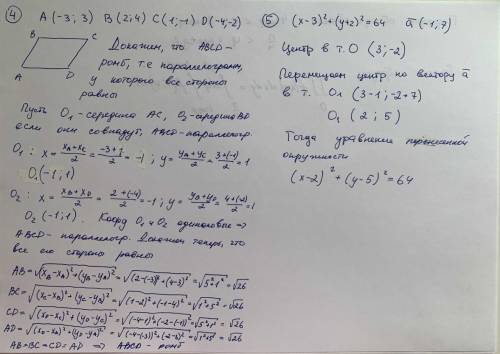 ④ A (-3; 3) B (2; 4) C (1; -1) D (-4; -2)
B C
A D
Докажем, что ABCD -
ромб, т.е параллелограмм,
у которого все стороны
равны
Пусть O₁ - середина AC, O₂ - середина BD
если они совпадут, ABCD - параллелогр.
O₁: x = (x_A + x_C)/2 = (-3+1)/2 = -1; y = (y_A + y_C)/2 = (3+(-1))/2 = 1
O₁ (-1; 1)
O₂: x = (x_B + x_D)/2 = (2+(-4))/2 = -1; y = (y_B + y_D)/2 = (4+(-2))/2 = 1
O₂ (-1; 1). Коорд O₁ и O₂ одинаковые ⇒
ABCD - параллелогр. Докажем теперь, что
все его стороны равны
AB = √((x_B - x_A)² + (y_B - y_A)²) = √((2-(-3))² + (4-3)²) = √(5²+1²) = √26
BC = √((x_C - x_B)² + (y_C - y_B)²) = √((1-2)² + (-1-4)²) = √(1²+5²) = √26
CD = √((x_D - x_C)² + (y_D - y_C)²) = √((-4-1)² + (-2-(-1))²) = √(5²+1²) = √26
AD = √((x_D - x_A)² + (y_D - y_A)²) = √((-4-(-3))² + (-2-3)²) = √(1²+5²) = √26
AB = BC = CD = AD ⇒ ABCD - ромб
⑤ (x-3)² + (y+2)² = 64 a̅ (-1; 7)
Центр в т. O (3; -2)
Перемещаем центр по вектору a̅
в т. O₁ (3-1; -2+7)
O₁ (2; 5)
Тогда уравнение перенесенной
окружности
(x-2)² + (y-5)² = 64